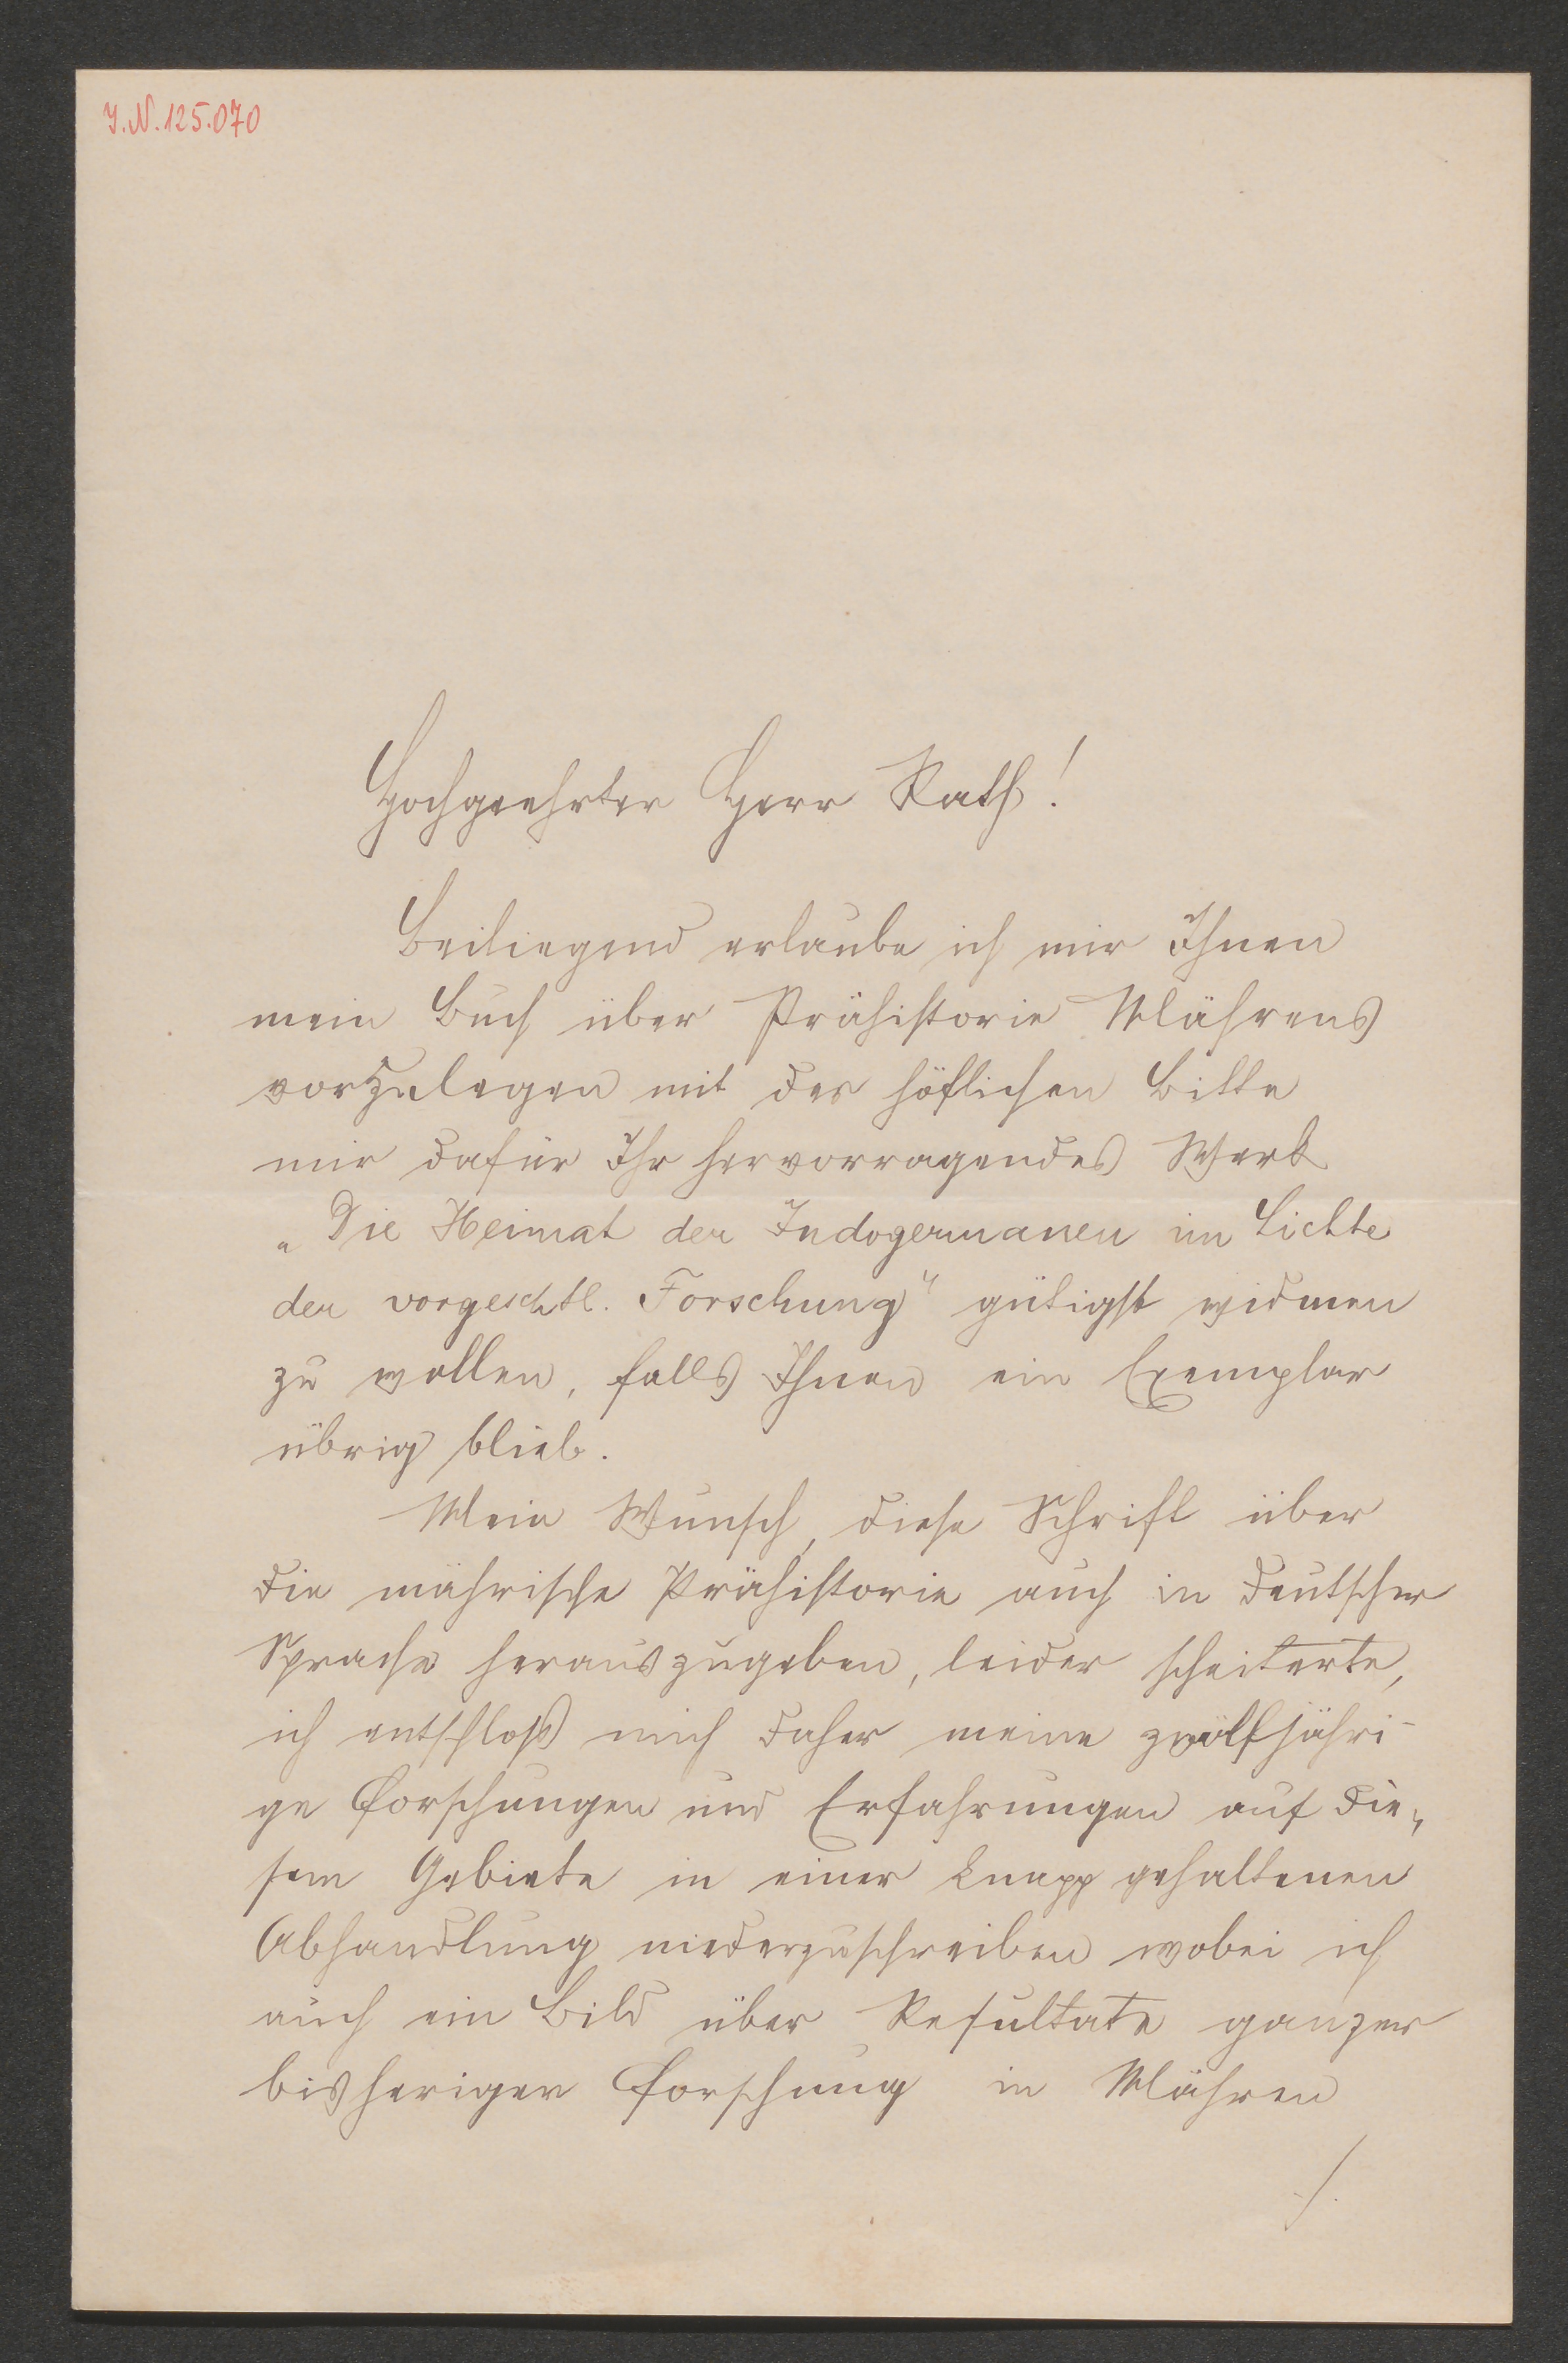 I.N. 125.070
Hochgeehrter Herr Rath!
Beiliegend erlaube ich mir Ihnen
mein Buch über Prähistorie Mährens
vorzulegen mit der höflichen Bitte
mir dafür Ihr hervorragendes Werk
„Die Heimat der Indogermanen im Lichte
der vorgeschtl. Forschung" gütigst widmen
zu wollen, falls Ihnen ein Exemplar
übrig blieb.
Mein Wunsch, diese Schrift über
die mährische Prähistorie auch in deutscher
Sprache herauszugeben, leider scheiterte,
ich entschloß mich daher meine zwölfjähri-
ge Forschungen und Erfahrungen auf die„
sem Gebiete in einer knapp gehaltenen
Abhandlung niederzuschreiben wobei ich
auch ein Bild über Resultate ganzer
bisheriger Forschung in Mähren
./.